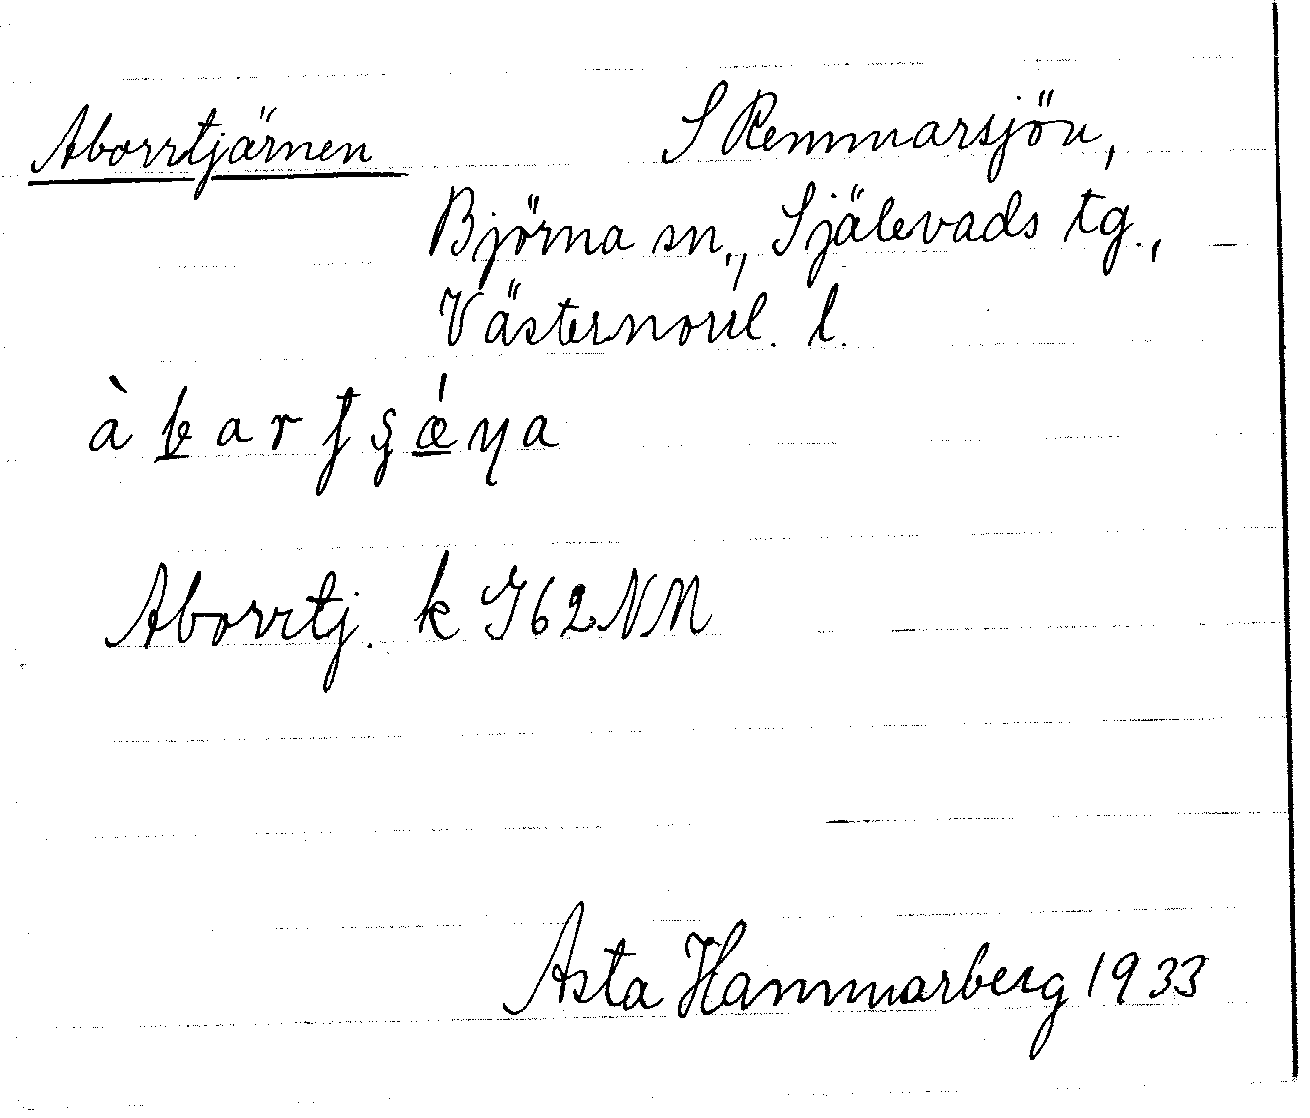 Aborrtjärnen S Remmarsjön,
Björna sn., Själevads tg.,
Västernorrl. l.
Aborrtj. k J62NM
Asta Hammarberg 1933